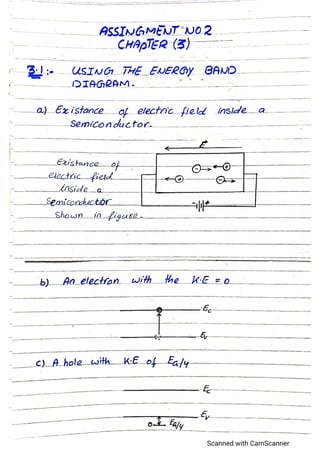 ASSINGMENT NO 2
CHAPTER (3)
3.1 :- USING THE ENERGY BAND
DIAGRAM.
a) Existance of electric field inside a
semiconductor.
Existance of
electric field
inside a
semiconductor
shown in figure.
E
b) An electron with the K.E = 0
Ec
Ev
c) A hole with K.E of EG/4
Ec
Ev
EG/4
Scanned with CamScanner